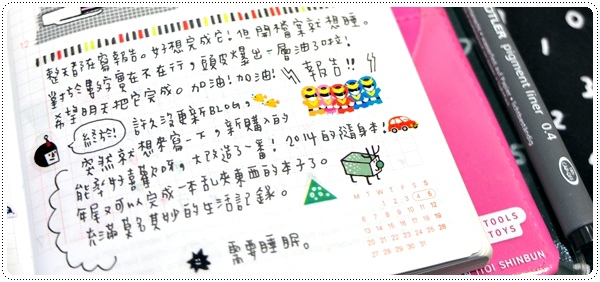 整天都在寫報告。好想完成它！但開檔案就想睡。
對於數字實在不在行，頭皮爆出一層油了啦！
希望明天把它完成。加油！加油！報告！！
終於！
許久沒更新BLOG，
突然就想來寫一下，新購入的
能幸好喜歡呀，大改造了一番！2014的隨身本！
年尾又可以完成一本亂夾東西的本子了。
充滿莫名其妙的生活記錄。
需要睡眠。
M T W T F S S
1 2 3 4 5 6 7
8 9 10 11 12 13 14
15 16 17 18 19 20 21
22 23 24 25 26 27 28
TOOLS
TOYS
ITOI SHINBUN
STAEDTLER pigment liner 0.4